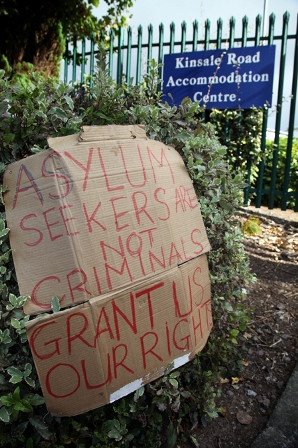 Kinsale Road
Accommodation
Centre.
ASYLUM
SEEKERS ARE
NOT
CRIMINALS
GRANT US
OUR RIGHT